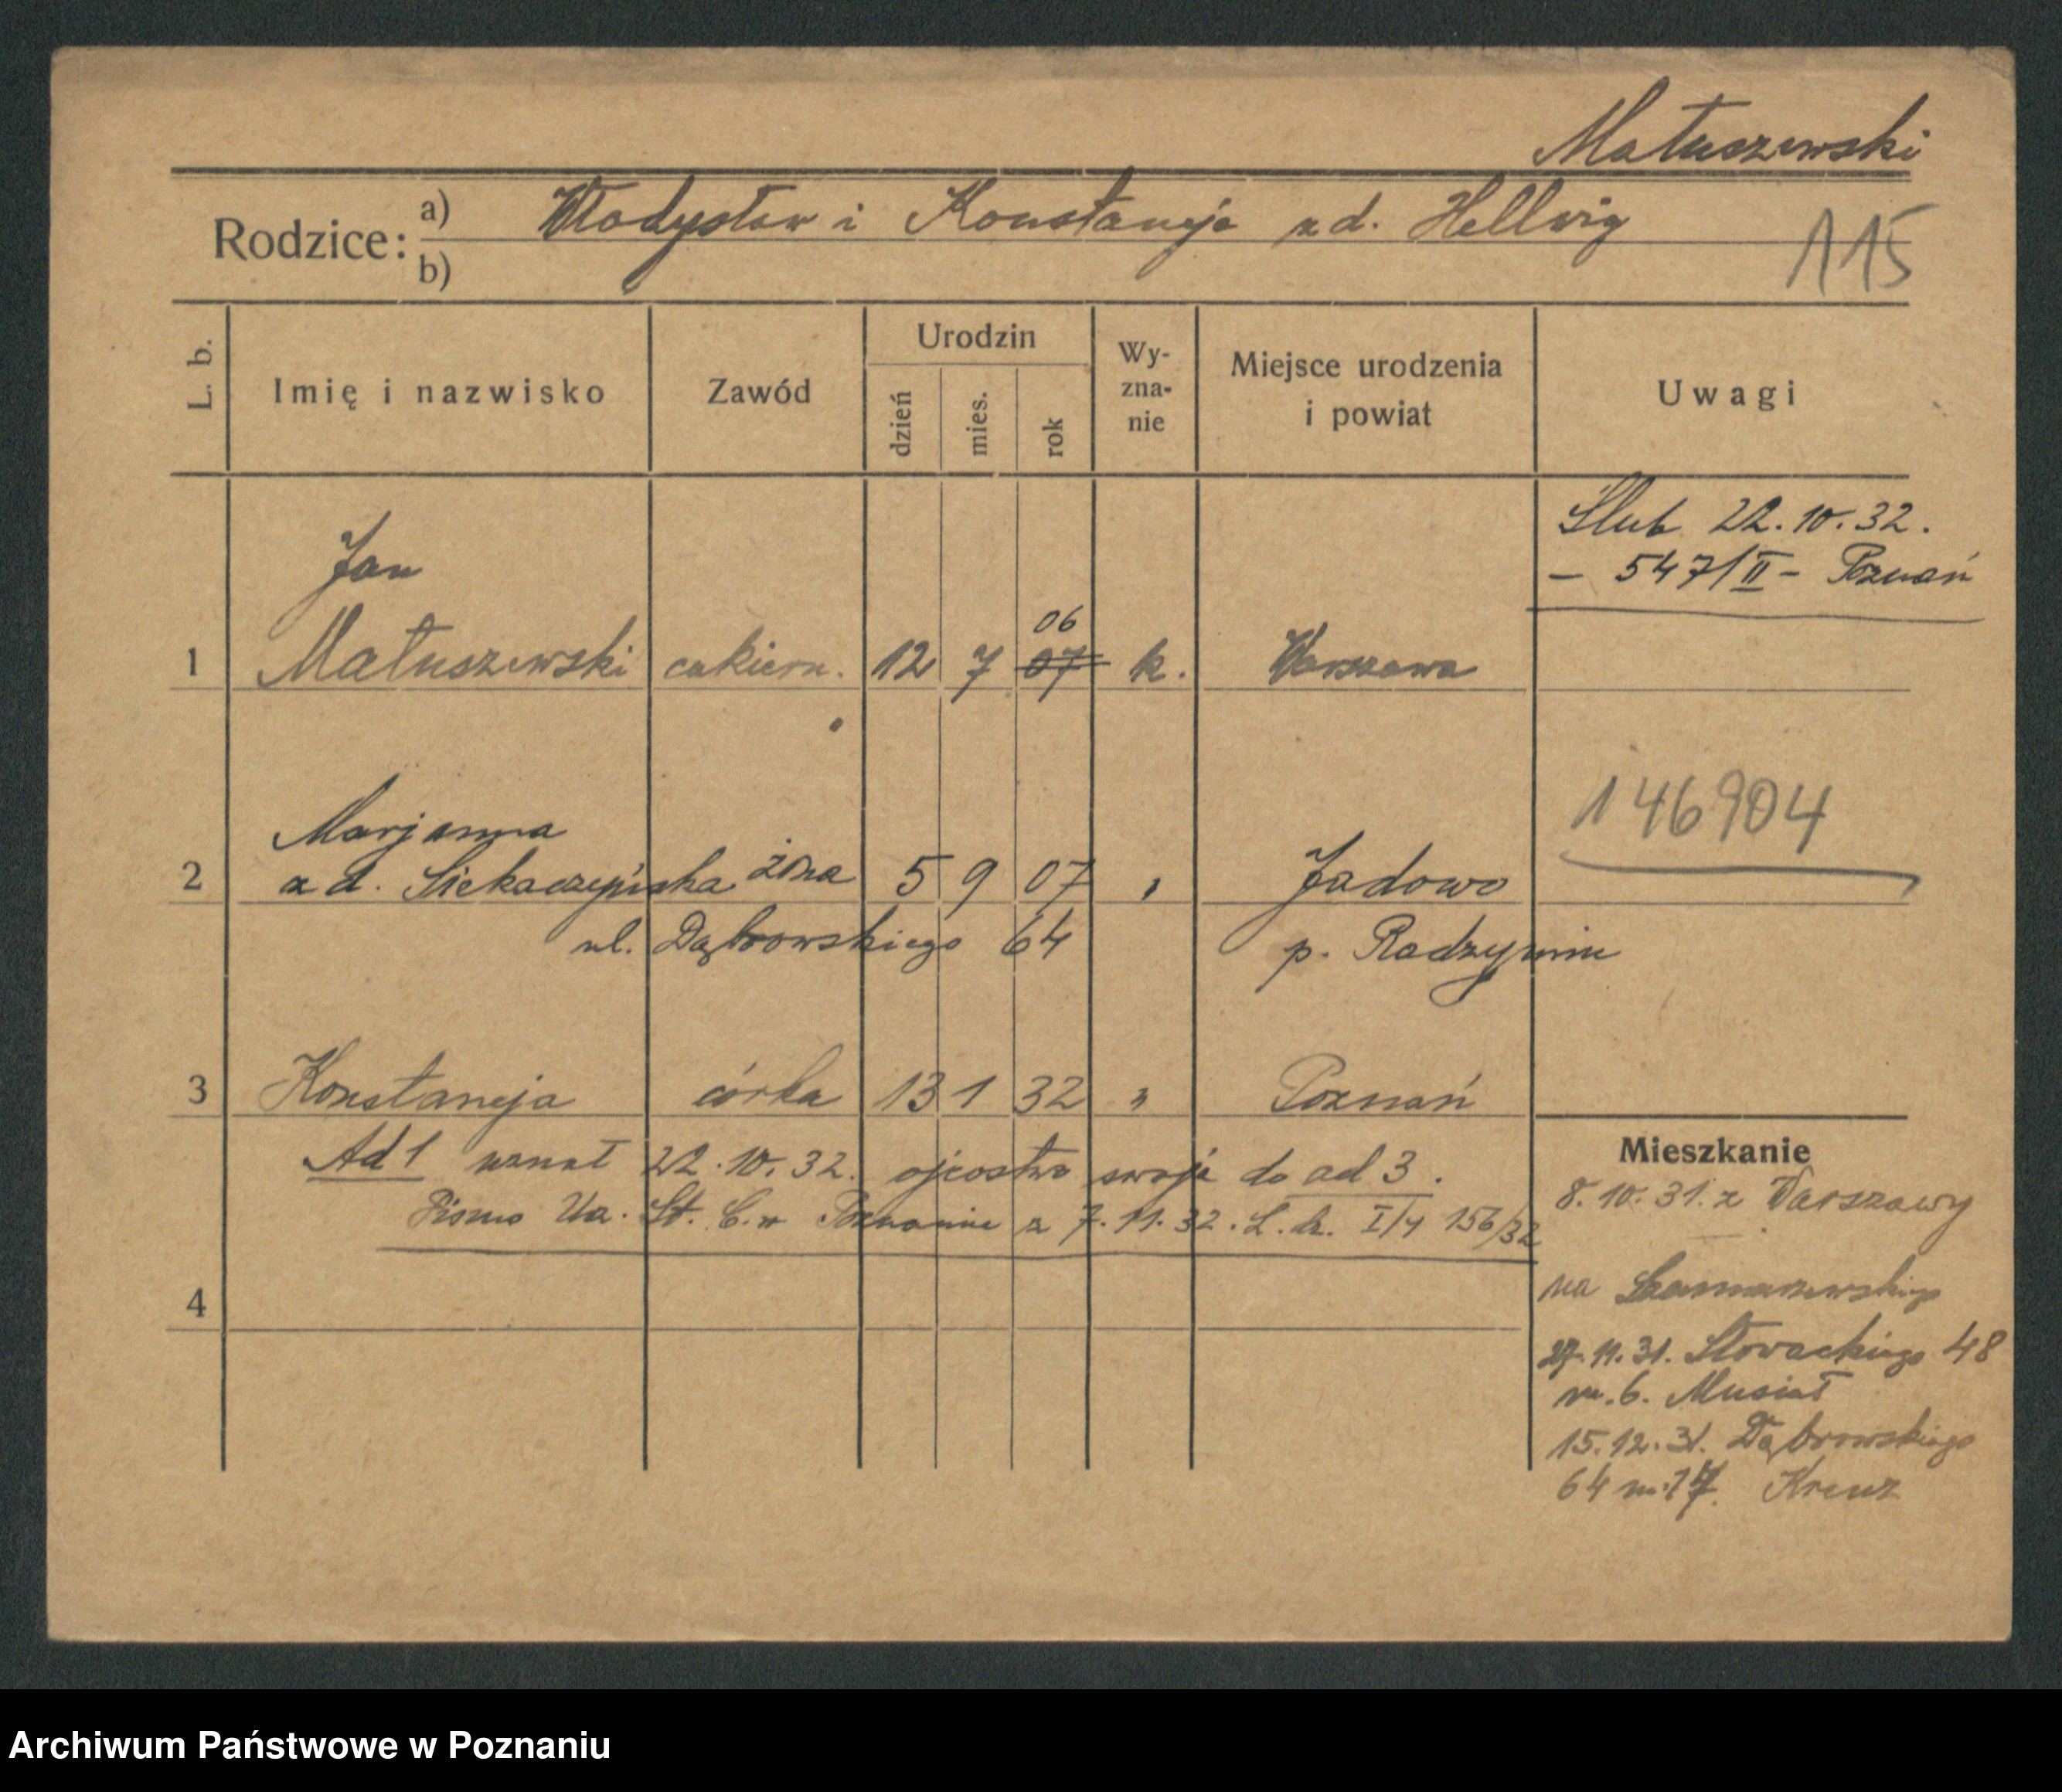 Matuszewski
Rodzice: a) Władysław i Konstancja z d. Hellwig
b)
115
L. b. Imię i nazwisko Zawód Urodzin dzień mies. rok Wy-zna-nie Miejsce urodzenia i powiat Uwagi
Ślub 22.10.32.
– 547/II – Poznań
Jan
06
1 Matuszewski cukiern. 12 7 07 k. Warszawa
146904
Marjanna
2 z d. żona 5 9 07 " Jadowo
ul. Dąbrowskiego 64 p. Radzymin
3 Konstancja córka 13 1 32 " Poznań
Ad 1 uznał 22.10.32. ojcostwo swoje do ad 3.
Pismo Urz. St. C. w Poznaniu z 7.11.32. L. dz. 156/32
4
Mieszkanie
8.10.31. z Warszawy
na
27.11.31. Słowackiego 48
m. 6. Musiał
15.12.31. Dąbrowskiego
64 m. 17. Kreuz
Archiwum Państwowe w Poznaniu